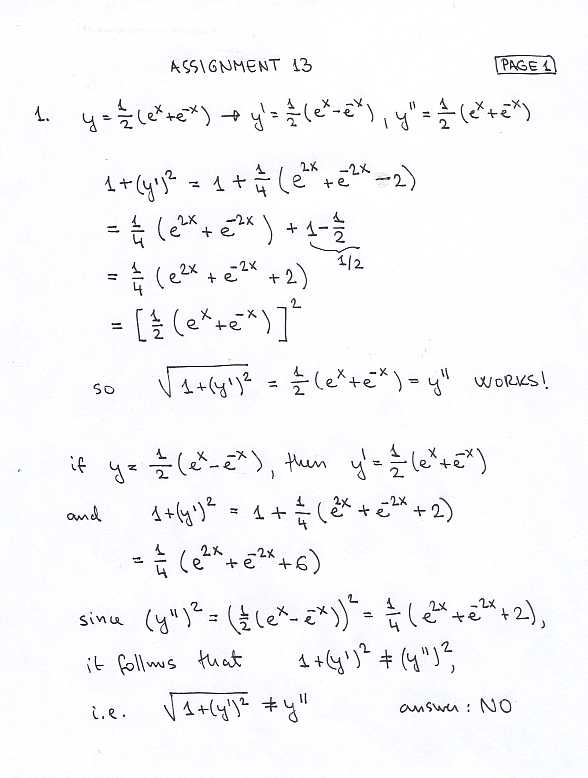 ASSIGNMENT 13
PAGE 1
1. y = 1/2 (e^x + e^-x) → y' = 1/2 (e^x - e^-x), y'' = 1/2 (e^x + e^-x)
1 + (y')^2 = 1 + 1/4 (e^2x + e^-2x - 2)
= 1/4 (e^2x + e^-2x) + 1 - 1/2
1/2
= 1/4 (e^2x + e^-2x + 2)
= [1/2 (e^x + e^-x)]^2
so √(1 + (y')^2) = 1/2 (e^x + e^-x) = y'' WORKS!
if y = 1/2 (e^x - e^-x), then y' = 1/2 (e^x + e^-x)
and 1 + (y')^2 = 1 + 1/4 (e^2x + e^-2x + 2)
= 1/4 (e^2x + e^-2x + 6)
since (y'')^2 = (1/2 (e^x - e^-x))^2 = 1/4 (e^2x + e^-2x + 2),
it follows that 1 + (y')^2 ≠ (y'')^2,
i.e. √(1 + (y')^2) ≠ y'' answer: NO